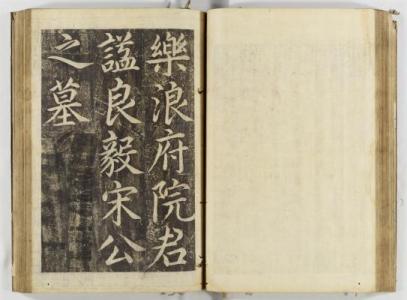 樂浪府院君
諡良毅宋公
之墓